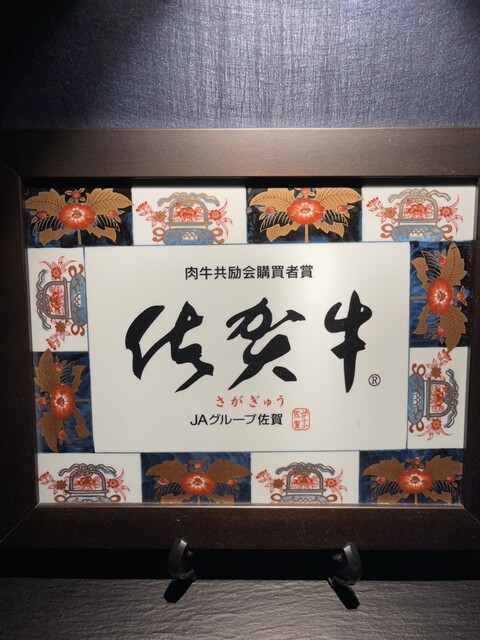 肉牛共励会購買者賞
佐賀牛®
さがぎゅう
JAグループ佐賀